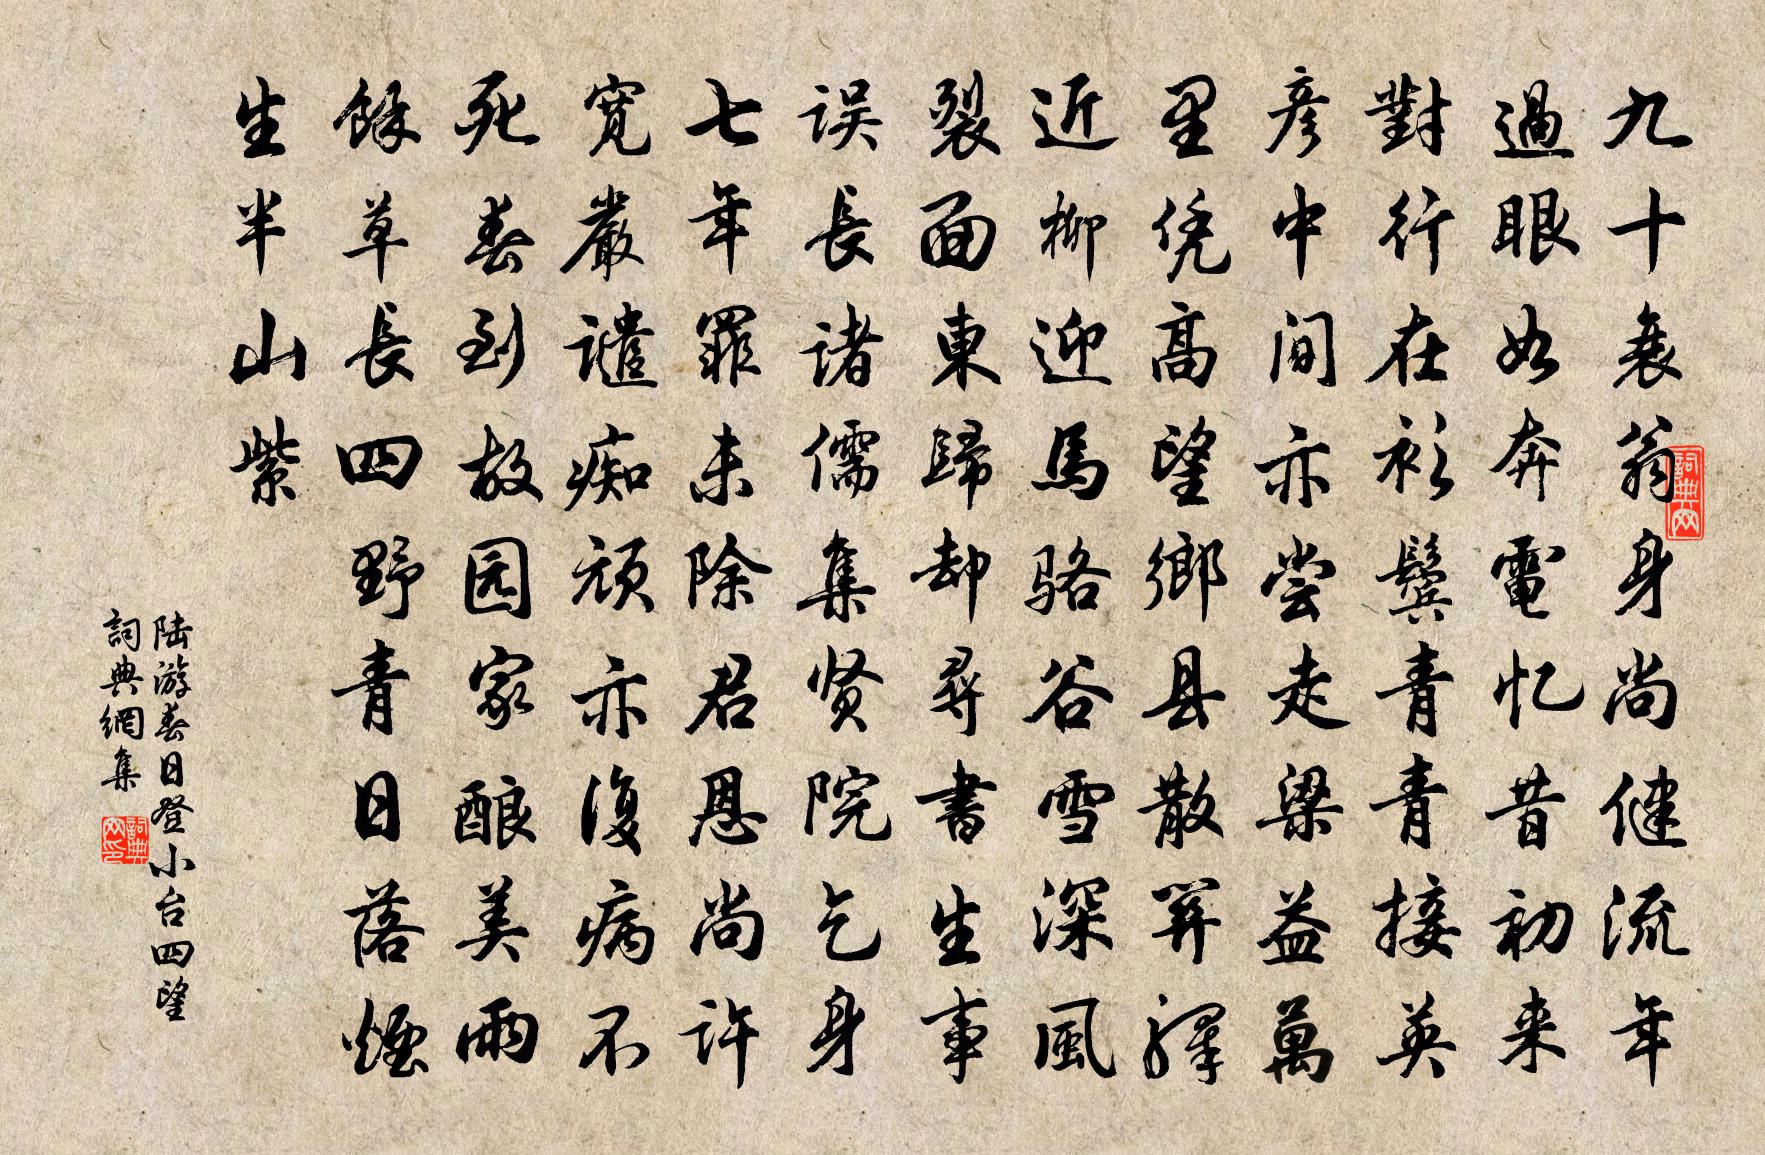 九十衰翁身尚健流年
過眼如奔電忆昔初来
對行在衫鬓青青接英
彦中間亦尝走梁益萬
里凭高望鄉县散关驛
近柳迎馬骆谷雪深風
裂面東歸却尋書生事
误長诸儒集贤院乞身
七年罪未除君恩尚许
寬嚴譴痴顽亦復病不
死春到故园家酿美雨
餘草長四野青日落煙
生半山紫
陆游春日登小台四望
詞典網集
詞典网
詞典网印